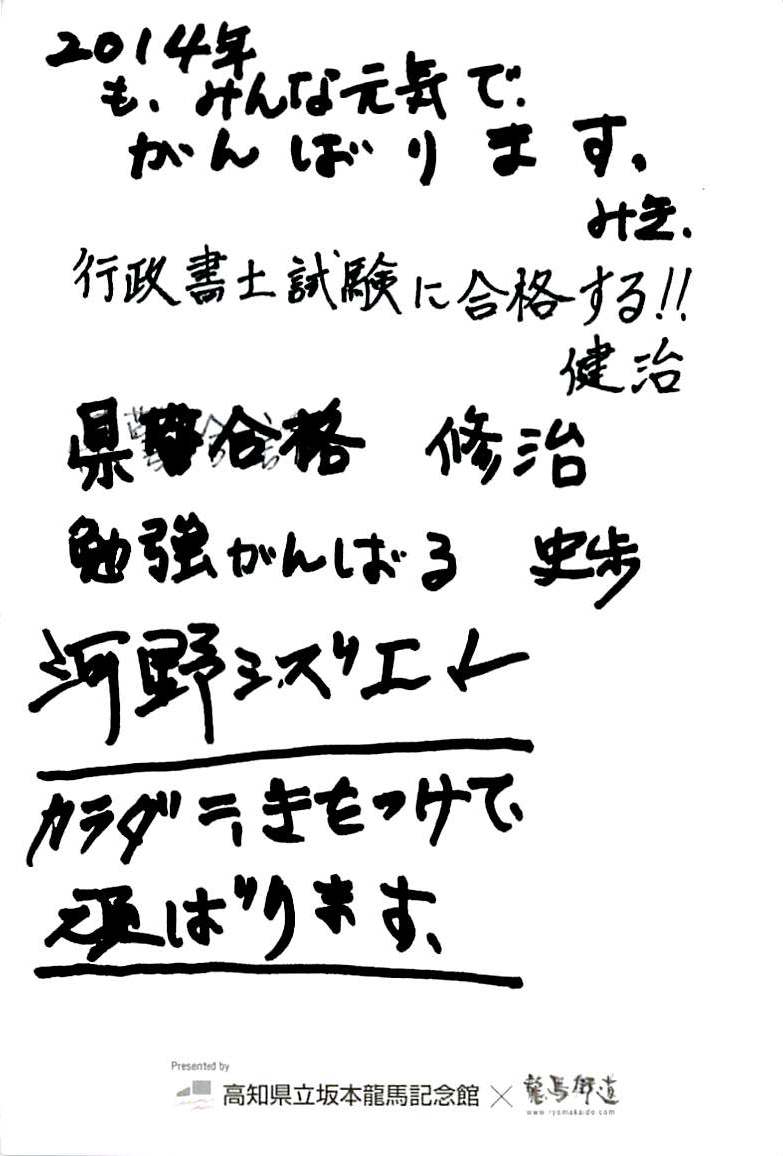 2014年
も、みんな元気で
がんばります。
みき.
行政書士試験に合格する!!
健治
県警合格 修治
勉強がんばる 史歩
河野シズリエ
カラダニきをつけて
頑ばります、
Presented by
高知県立坂本龍馬記念館 × 龍馬街道
www.ryomakaido.com